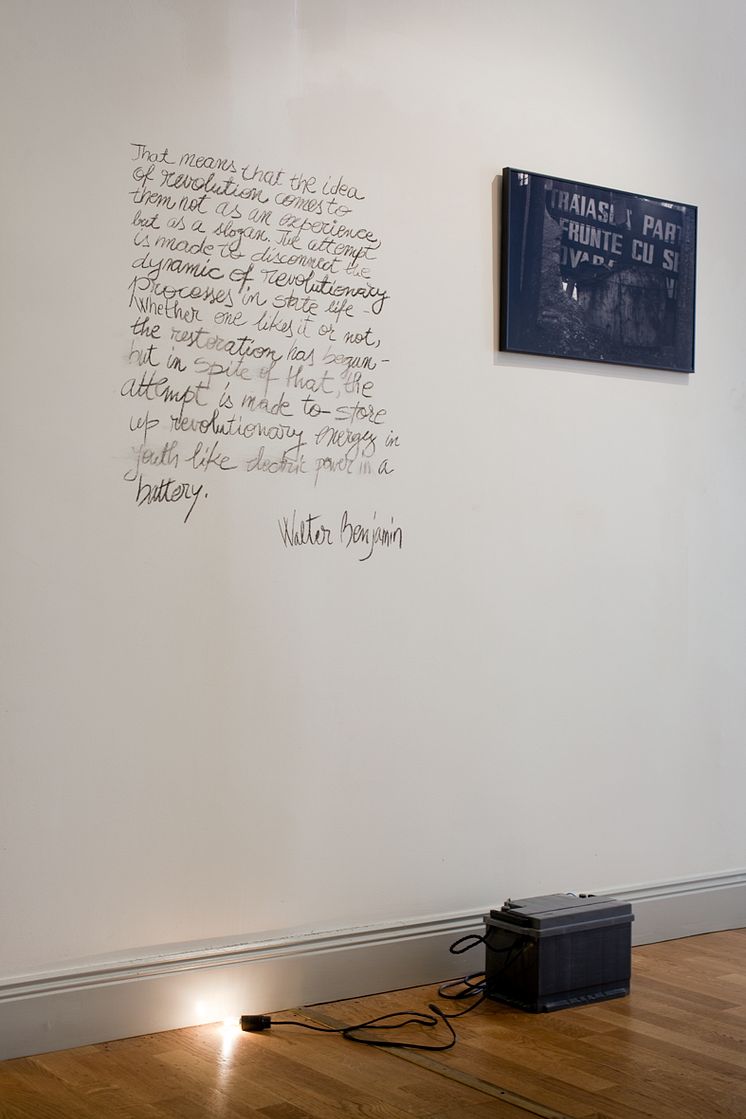 That means that the idea
of revolution comes to
them not as an experience
but as a slogan. The attempt
is made to disconnect the
dynamic of revolutionary
processes in state life -
Whether one likes it or not,
the restoration has begun -
but in spite of that, the
attempt is made to store
up revolutionary energy in
youth like electric power in a
battery.
Walter Benjamin
TRAIASC PART
FRUNTE CU SE
OVARA